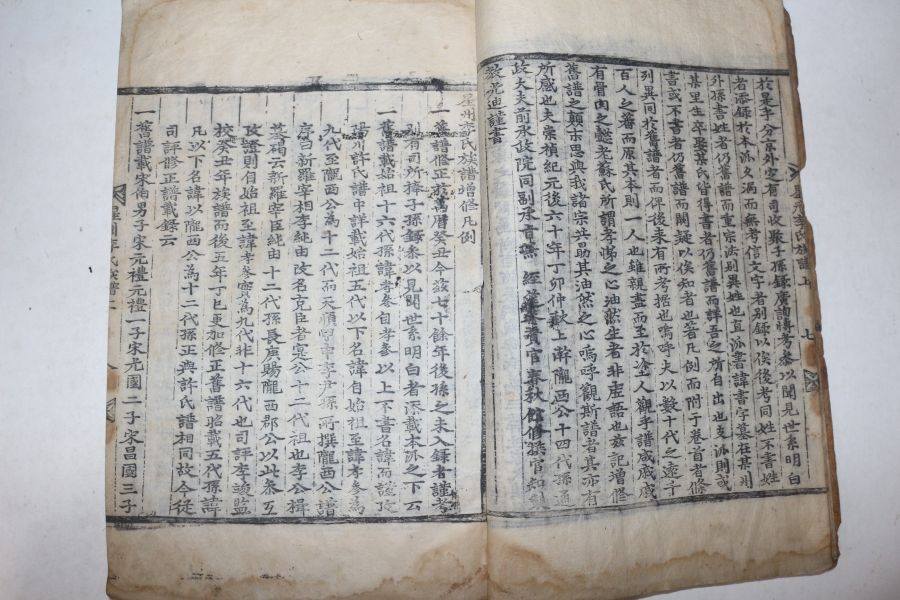 於是乎分京外定有司收取子孫錄廣詢博考參以聞見世系明白
者添錄於本派久漏而無考信文字者別錄以俟後考同姓不書姓
外孫書姓者仍舊譜而重宗法別異姓也直派書諱書字墓在某州
某里生卒娶某氏皆得書者仍舊譜而詳吾之所自出也支派則或
書或不書者仍舊譜而闕疑以俟知者也著凡例而附于卷首者條
列異同於舊譜者而俾後來有所考據也嗚呼夫以數十代之遠千
百人之蕃而原其本則一人也雖親盡而至於塗人觀乎譜戚戚
有骨肉之懿老蘇氏所謂孝悌之心油然生者非虛語也玆記增修
舊譜之顚末思與我諸宗共勗其油然之心嗚呼觀斯譜者其亦有
所感也夫崇禎紀元後六十年丁卯仲秋上澣隴西公十四代孫通
政大夫前承政院同副承旨兼 經筵參贊官春秋館修撰官知製
敎 光迪謹書
星州李氏族譜增修凡例
一舊譜修正於萬曆癸丑今玆七十餘年後孫之未入錄者謹考
有司所捧子孫錄參以見聞世系明白者添載本派之下云
一舊譜載始祖十六代孫諱孝參自孝參以上不書名諱而謹考
陽川許氏譜中詳載始祖五代以下名諱自始祖至諱孝參為
九代至隴西公為十二代而天順 李尹孫所撰隴西公譜
序曰新羅宰相李純由改名克臣者寔公十二代祖也李公揖
墓碣云新羅宰臣純由十二代孫長庚賜隴西郡公以此參互
攷證則自始祖至諱孝參實為九代非十六代也司評奎竣監
校癸丑年族譜而後五年丁巳更加修正舊譜昭載五代孫諱
凡以下名諱以隴西公為十二代孫正與許氏譜相同故今從
司評修正譜載錄云
一舊譜載宋伯男子宋元禮元禮一子宋光國二子宋昌國三子